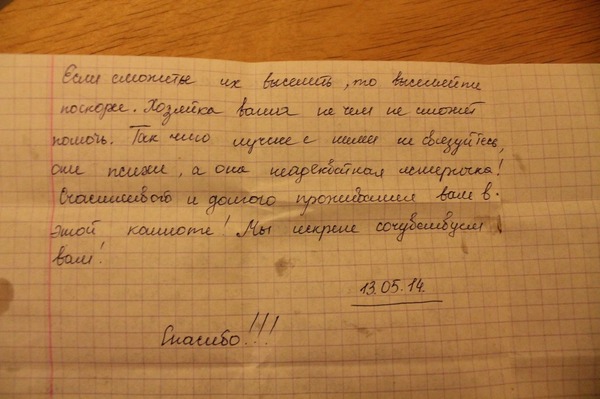 Если сможете их выселить, то выселяйти
поскорее. Хозяйка ваша не чем не сможет
помочь. Так что лучше с ними не связуйтесь,
они психи, а она неадекватная истеричка!
Счастливого и долгого проживания вам в
этой комноте! Мы искрене сочувствуем
вам!
13.05.14.
Спасибо!!!